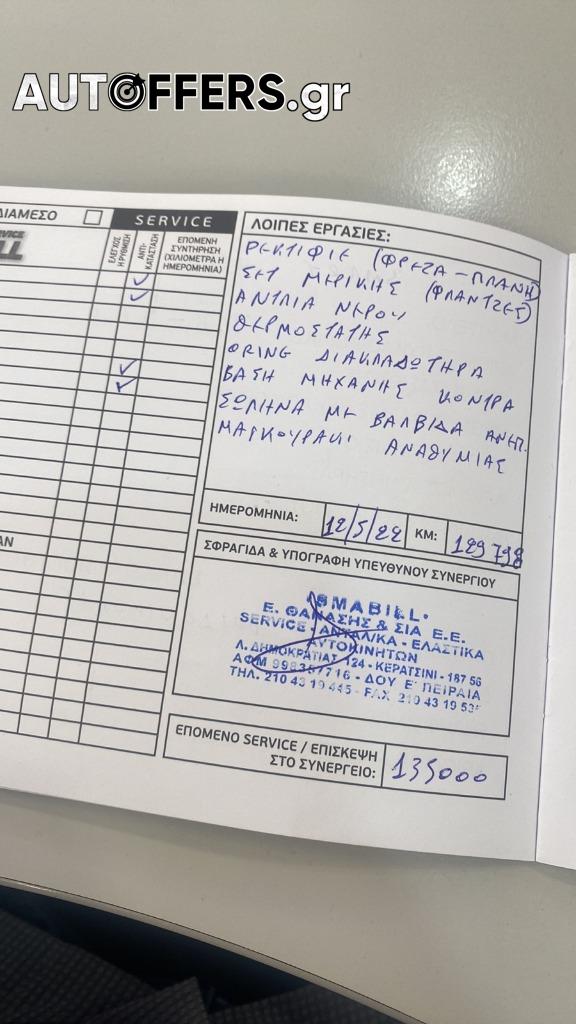 AUTOFFERS.gr
ΔΙΑΜΕΣΟ
SERVICE
ΕΛΕΓΧΟΣ
Η ΡΥΘΜΙΣΗ
ΑΝΤΙ-
ΚΑΤΑΣΤΑΣΗ
ΕΠΟΜΕΝΗ
ΣΥΝΤΗΡΗΣΗ
(ΧΙΛΙΟΜΕΤΡΑ Η
ΗΜΕΡΟΜΗΝΙΑ)
ΛΟΙΠΕΣ ΕΡΓΑΣΙΕΣ:
ΡΕΚΤΙΦΙΕ (ΦΡΕΖΑ - ΠΛΑΝΗ)
ΣΕΤ ΜΕΡΙΚΗΣ (ΦΛΑΝΤΖΕΣ)
ΑΝΤΛΙΑ ΝΕΡΟΥ
ΘΕΡΜΟΣΤΑΤΗΣ
ORING ΔΙΑΚΛΑΔΩΤΗΡΑ
ΒΑΣΗ ΜΗΧΑΝΗΣ ΚΟΝΤΡΑ
ΣΩΛΗΝΑ ΜΕ ΒΑΛΒΙΔΑ ΑΝΕΠ.
ΜΑΡΚΟΥΡΑΚΙ ΑΝΑΘΥΜΙΑΣ
ΗΜΕΡΟΜΗΝΙΑ: 12/5/22 ΚΜ: 129798
ΣΦΡΑΓΙΔΑ & ΥΠΟΓΡΑΦΗ ΥΠΕΥΘΥΝΟΥ ΣΥΝΕΡΓΙΟΥ
Ε. ΘΑΝΑΣΗΣ & ΣΙΑ Ε.Ε.
SERVICE - ΑΝΤΑΛ/ΚΑ - ΕΛΑΣΤΙΚΑ
ΑΥΤΟΚΙΝΗΤΩΝ
Λ. ΔΗΜΟΚΡΑΤΙΑΣ 124 - ΚΕΡΑΤΣΙΝΙ - 187 56
ΑΦΜ 998357716 - ΔΟΥ Ε' ΠΕΙΡΑΙΑ
ΤΗΛ. 210 43 19 445 - FAX 210 43 19
ΕΠΟΜΕΝΟ SERVICE / ΕΠΙΣΚΕΨΗ
ΣΤΟ ΣΥΝΕΡΓΕΙΟ: 135000